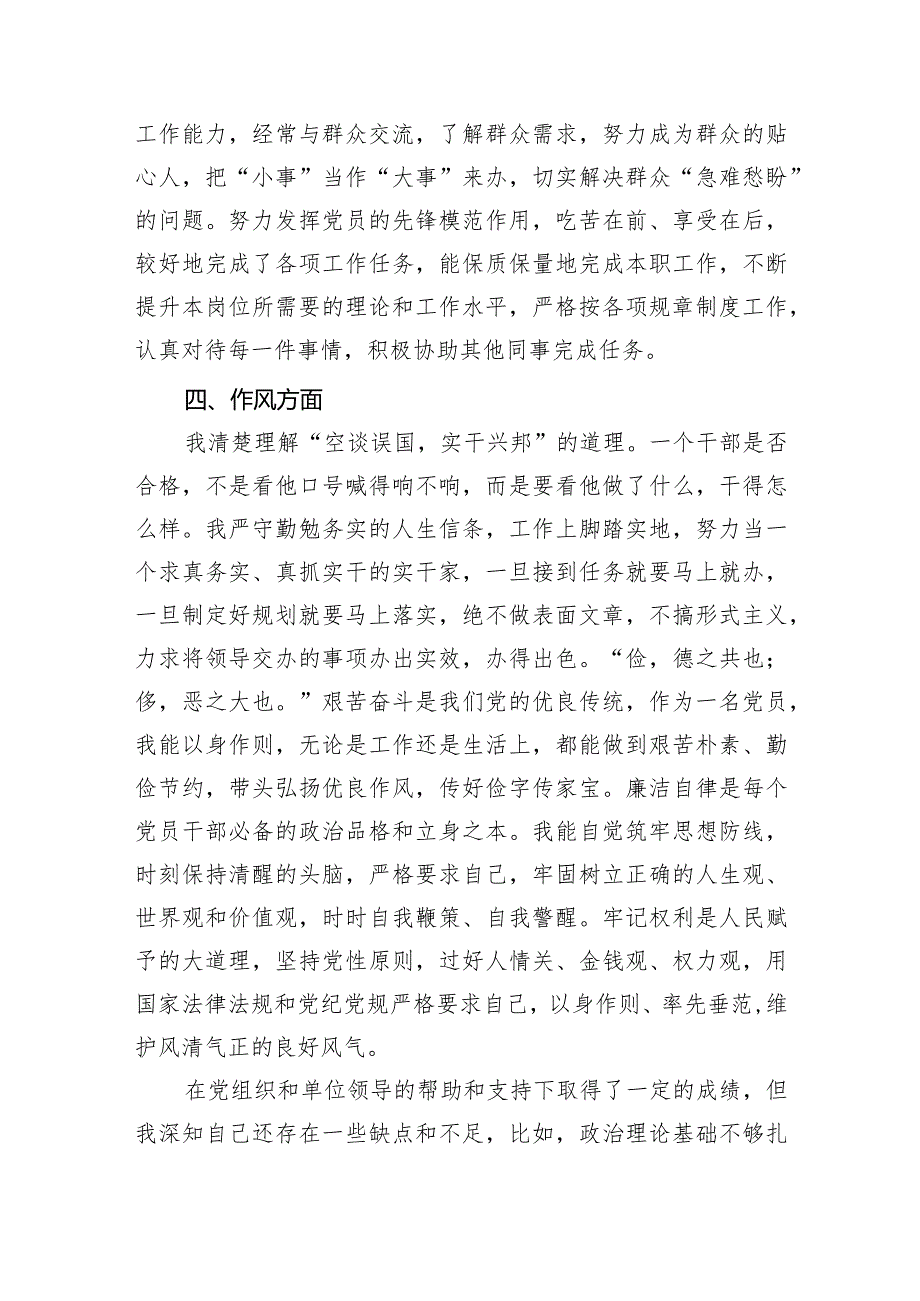 工作能力，经常与群众交流，了解群众需求，努力成为群众的贴
心人，把“小事”当作“大事”来办，切实解决群众“急难愁盼”
的问题。努力发挥党员的先锋模范作用，吃苦在前、享受在后，
较好地完成了各项工作任务，能保质保量地完成本职工作，不断
提升本岗位所需要的理论和工作水平，严格按各项规章制度工作，
认真对待每一件事情，积极协助其他同事完成任务。
四、作风方面
我清楚理解“空谈误国，实干兴邦”的道理。一个干部是否
合格，不是看他口号喊得响不响，而是要看他做了什么，干得怎
么样。我严守勤勉务实的人生信条，工作上脚踏实地，努力当一
个求真务实、真抓实干的实干家，一旦接到任务就要马上就办，
一旦制定好规划就要马上落实，绝不做表面文章，不搞形式主义，
力求将领导交办的事项办出实效，办得出色。“俭，德之共也；
侈，恶之大也。”艰苦奋斗是我们党的优良传统，作为一名党员，
我能以身作则，无论是工作还是生活上，都能做到艰苦朴素、勤
俭节约，带头弘扬优良作风，传好俭字传家宝。廉洁自律是每个
党员干部必备的政治品格和立身之本。我能自觉筑牢思想防线，
时刻保持清醒的头脑，严格要求自己，牢固树立正确的人生观、
世界观和价值观，时时自我鞭策、自我警醒。牢记权利是人民赋
予的大道理，坚持党性原则，过好人情关、金钱观、权力观，用
国家法律法规和党纪党规严格要求自己，以身作则、率先垂范,维
护风清气正的良好风气。
在党组织和单位领导的帮助和支持下取得了一定的成绩，但
我深知自己还存在一些缺点和不足，比如，政治理论基础不够扎